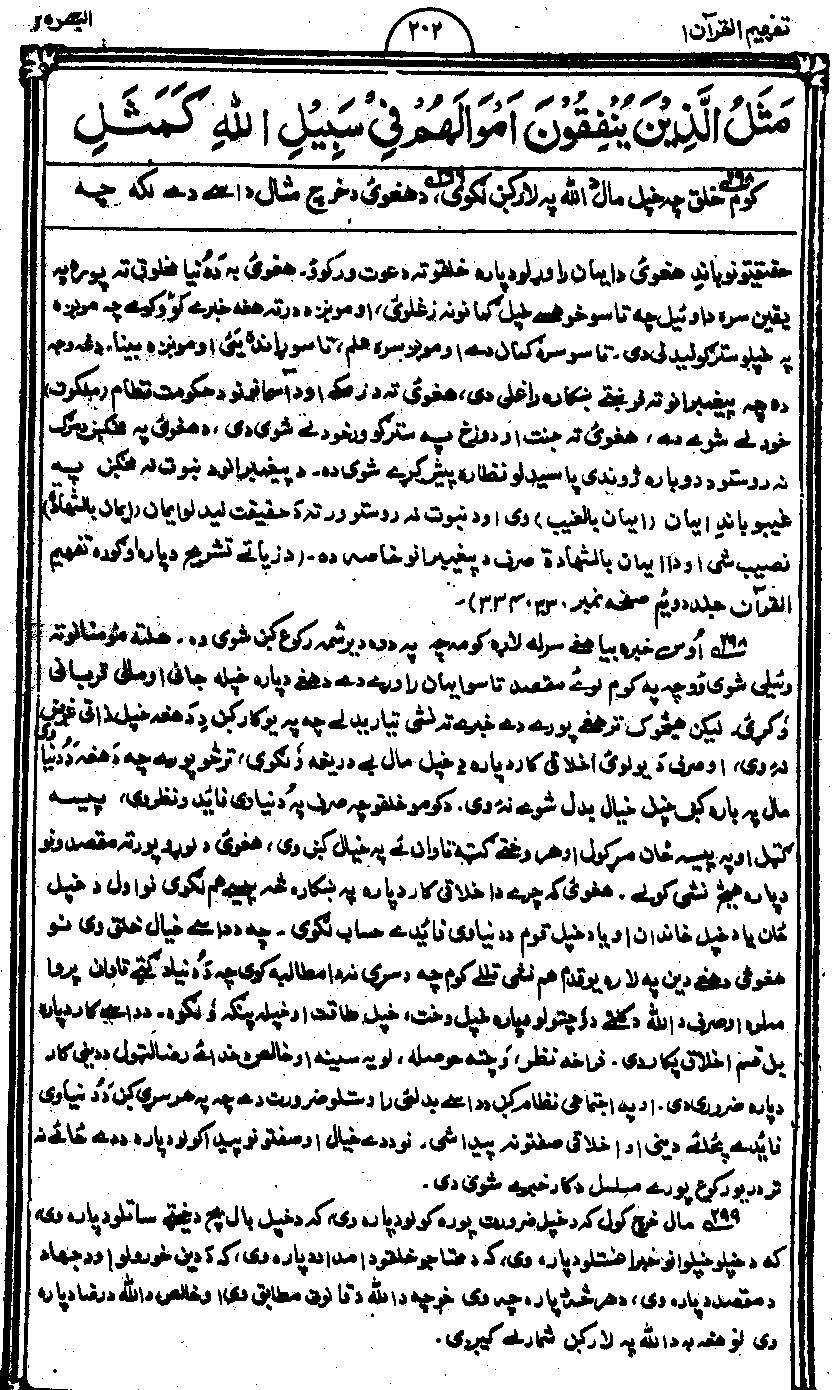 تفهيم القرآن ١
٢٠٢
البقره ٢
مَثَلُ الَّذِيْنَ يُنْفِقُوْنَ اَمْوَالَهُمْ فِيْ سَبِيْلِ اللهِ كَمَثَلِ
كوم خلق چه خپل مال د الله په لار كښ لګوي، د هغوئ د خرچ مثال داسے دے لكه چه
حقيقتونو باندِ هغوئ دايمان راوړلو دپاره خلقو ته دعوت وركوؤ. هغوئ به دُنيا مخلوق ته پوره په
يقين سره دا وئيل چه تاسو خو هسے خپل ګمانونه زغلوئ، او مونږه درته هغه خبرے كوُو كومے چه مونږه
په خپلو سترګو ليدلى دى. تاسو سره ګمان دے او مونږ سره علم، تاسو ړاندهٔ يئى او مونږه بينا. دغه وجه
ده چه پيغمبرانو ته فرښتے ښكاره راغلى دى، هغوئ ته د زمكے او د آسمانونو د حكومت نظام (ملكوت)
خودلے شوے دے، هغوئ ته جنت او دوزخ په سترګو ورخودلے شوى دى، د هغوئ په مخكښ د مرګ
نه روستو د دوباره ژوندى پاسيدلو نظاره پيش كړے شوى ده. د پيغمبرانو د نبوت نه مخكښ په
غيبو باندِ ايمان (ايمان بالغيب) وى او د نبوت نه روستو ورته دَ حقيقت ليدلو ايمان (ايمان بالشهادة)
نصيب شى او دا ايمان بالشهادة صرف د پيغمبرانو خاصه ده. (د زياتے تشريح دپاره اوګوره تفهيم
القرآن جلد دوئم صفحه نمبر ٣٣٠، ٣٣٤)۔
٢٩٨ اُوس خبره بيا هغے سرله لاړه كومه چه په دوه ديرشمه ركوع كښ شوى ده. هلته مؤمنانو ته
وئيلى شوى وُو چه په كوم لوئے مقصد تاسو ايمان راوړے دے د هغے دپاره خپله جانى او مالى قربانى
وُكړئ. ليكن هيڅوك تر هغے پورے دے خبرے ته نشى تياريدلے چه په يو كار كښ دِ د هغه خپل ذاتى غرض
نۀ وى، او صرف دَ يو لوئ اخلاقى كار دپاره دِ خپل مال بے دريغه وُلګوى، ترڅو پورے چه دَ هغه دَ دُنيا وى
مال په باره كښ خپل خيال بدل شوے نۀ وى. د كومو خلقو چه صرف په دُنياوى فائد و نظر وى، پيسے
ګټل او په پيسه ځان مړ كول او هر وخت ګټه تاوان ئے په خيال كښ وى، هغوئ د لوړو پورته مقصدونو
دپاره هيڅ نشى كولے. هغوئ كه چرے د اخلاقى كار دپاره په ښكاره څه پيسے هم لګوى نو اول د خپل
ځان يا د خپل خاندان او يا د خپل قوم د دنياوى فائدے حساب لګوى. چه د داسے خيال خلق وى نو
هغوئ د هغے دين په لاره يو قدم هم نشى تللے كوم چه د سړى نه دا مطالبه كوى چه دَ دُنياد ګټے تاوان پروا
مه ساته او صرف د الله د كلمے د اُوچتولو دپاره خپل وخت، خپل طاقت او خپله پنګه وُلګوه. د داسے كار دپاره
بل قسم اخلاق پكار دى. فراخه نظر، اُوچته حوصله، لويه سينه او خالص د خدائے رضا لټول د دينى كار
دپاره ضرورى دى. او په اجتماعى نظام كښ د داسے بدلئ راوستلو ضرورت دے چه په هر سړى كښ دَ دُنياوى
فائدے په ځائے دينى او اخلاقى صفتونه پيدا شى. نو د دے خيال او صفتونو پيدا كولو دپاره د دے ځائے نه
تر در يو ركوع پورے مسلسل د كار خبرے شوى دى.
٢٩٩ مال خرچ كول كه د خپل ضرورت پوره كولو دپاره وى، كه د خپل بال بچ د خيټے ساتلو دپاره وى،
كه د خپلو خپلوانو خبر اخستلو دپاره وى، كه د محتاجو خلقو د امداد دپاره وى، كه دَ دين خورولو او د جهاد
د مقصد دپاره وى، د هر څهٔ دپاره چه وى خو چه د الله د قانون مطابق وى او خالص د الله د رضا دپاره
وى نو هغه به د الله په لار كښ شمارلے كيږى.